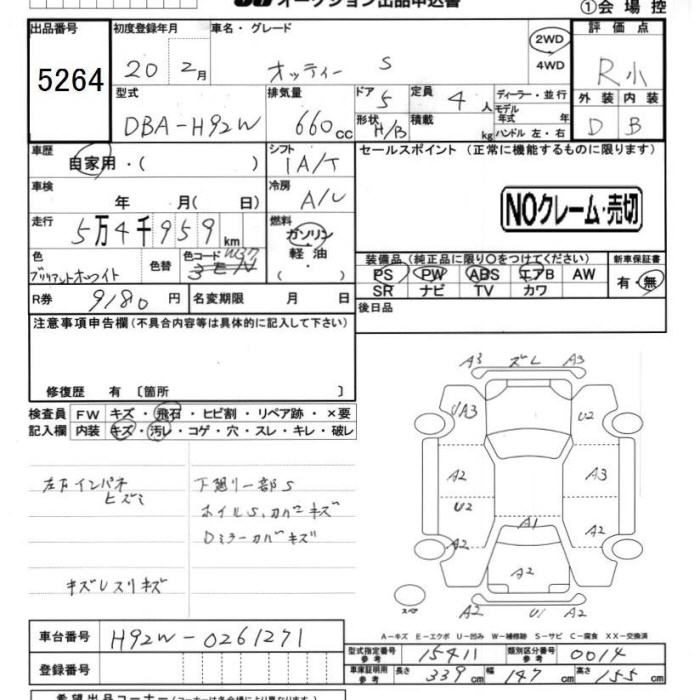 オークション出品申込書 ①会場控
出品番号 初度登録年月 車名・グレード 評価点
5264 20 2月 オッティー S 2WD 4WD R小
型式 排気量 ドア 定員 ディーラー・並行 外装 内装
DBA-H92W 660cc 5 4人 モデル年式 年 D B
形状 H/B 積載 kg ハンドル 左・右
車歴 シフト セールスポイント (正常に機能するものに限ります)
自家用・( ) IA/T
車検 冷房
年 月( 日) A/C NOクレーム・売切
走行 燃料
5万4千959km ガソリン
軽油
色 色替 色コード W37 ( ・ ) 装備品(純正品に限り○をつけてください) 新車保証書
ブリリアントホワイト PS PW ABS エアB AW 有・無
SR ナビ TV カワ
R券 9180円 名変期限 月 日 後日品
注意事項申告欄(不具合内容等は具体的に記入して下さい)
修復歴 有 〔箇所 〕
検査員 FW キズ・飛石・ヒビ割・リペア跡・×要
記入欄 内装 キズ・汚レ・コゲ・穴・スレ・キレ・破レ
A3 ズレ A3
UA3 U2
A2 A3
U2 A1
A2 A2
A2
A2 U1 A2
スペア
左右インパネ 下廻り一部S
ヒズミ ホイルS、カバーキズ
Dミラーカバキズ
キズレスリキズ
A-キズ E-エクボ U-凹み W-補修跡 S-サビ C-腐食 XX-交換済
車台番号 H92W-0261271
型式指定番号 参考 15411 類別区分番号 参考 0014
登録番号 車庫証明用 参考 長さ 339cm 幅 147cm 高さ 155cm
希望出品コーナー